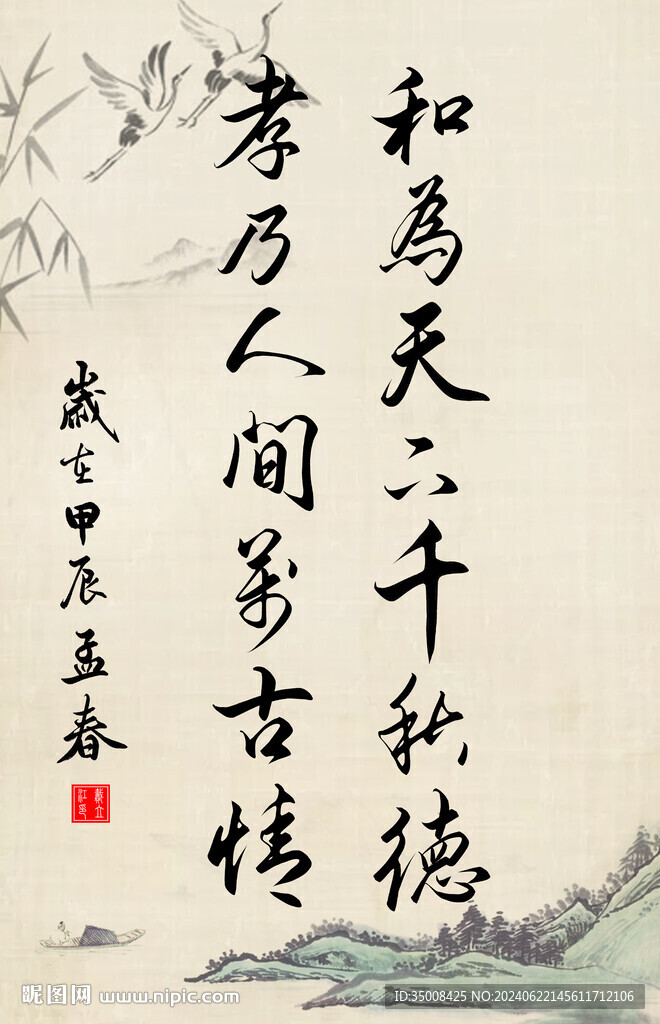 和為天下千秋德
孝乃人間萬古情
歲在甲辰孟春
昵图网 www.nipic.com
ID:35008425 NO:20240622145611712106